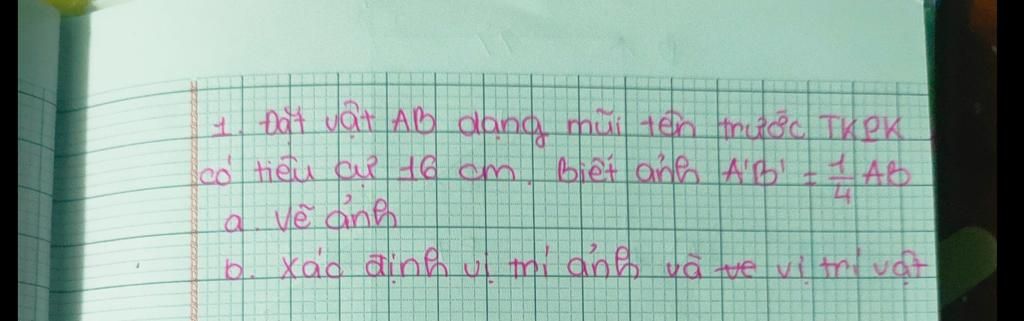 1. Đặt vật AB dạng mũi tên trước TKPK
có tiêu cự 16 cm. Biết ảnh A'B' = 1/4 AB
a. vẽ ảnh
b. xác định vị trí ảnh và vị trí vật